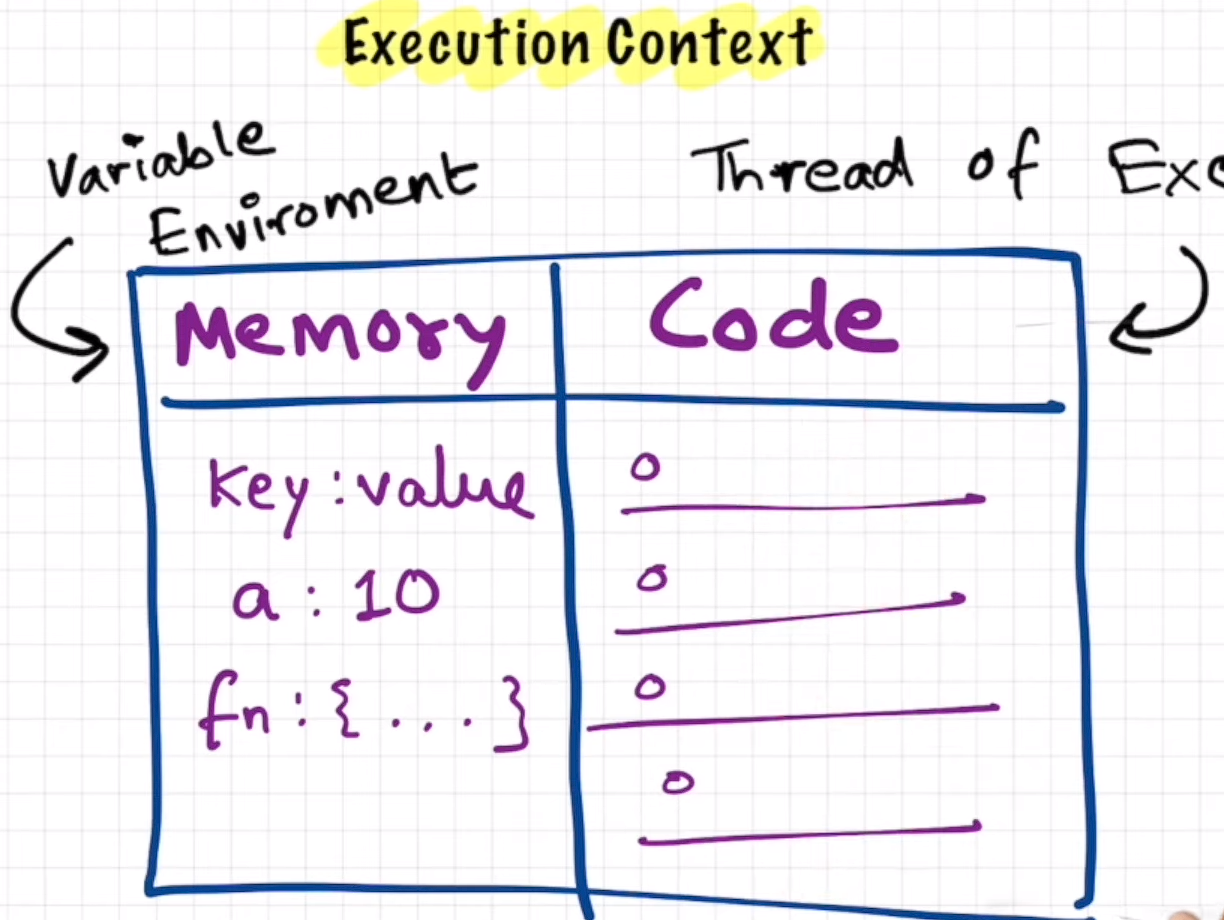 Execution Context
Variable
Enviroment
Thread of Exc
Memory
Code
key : value
a : 10
fn : { ... }